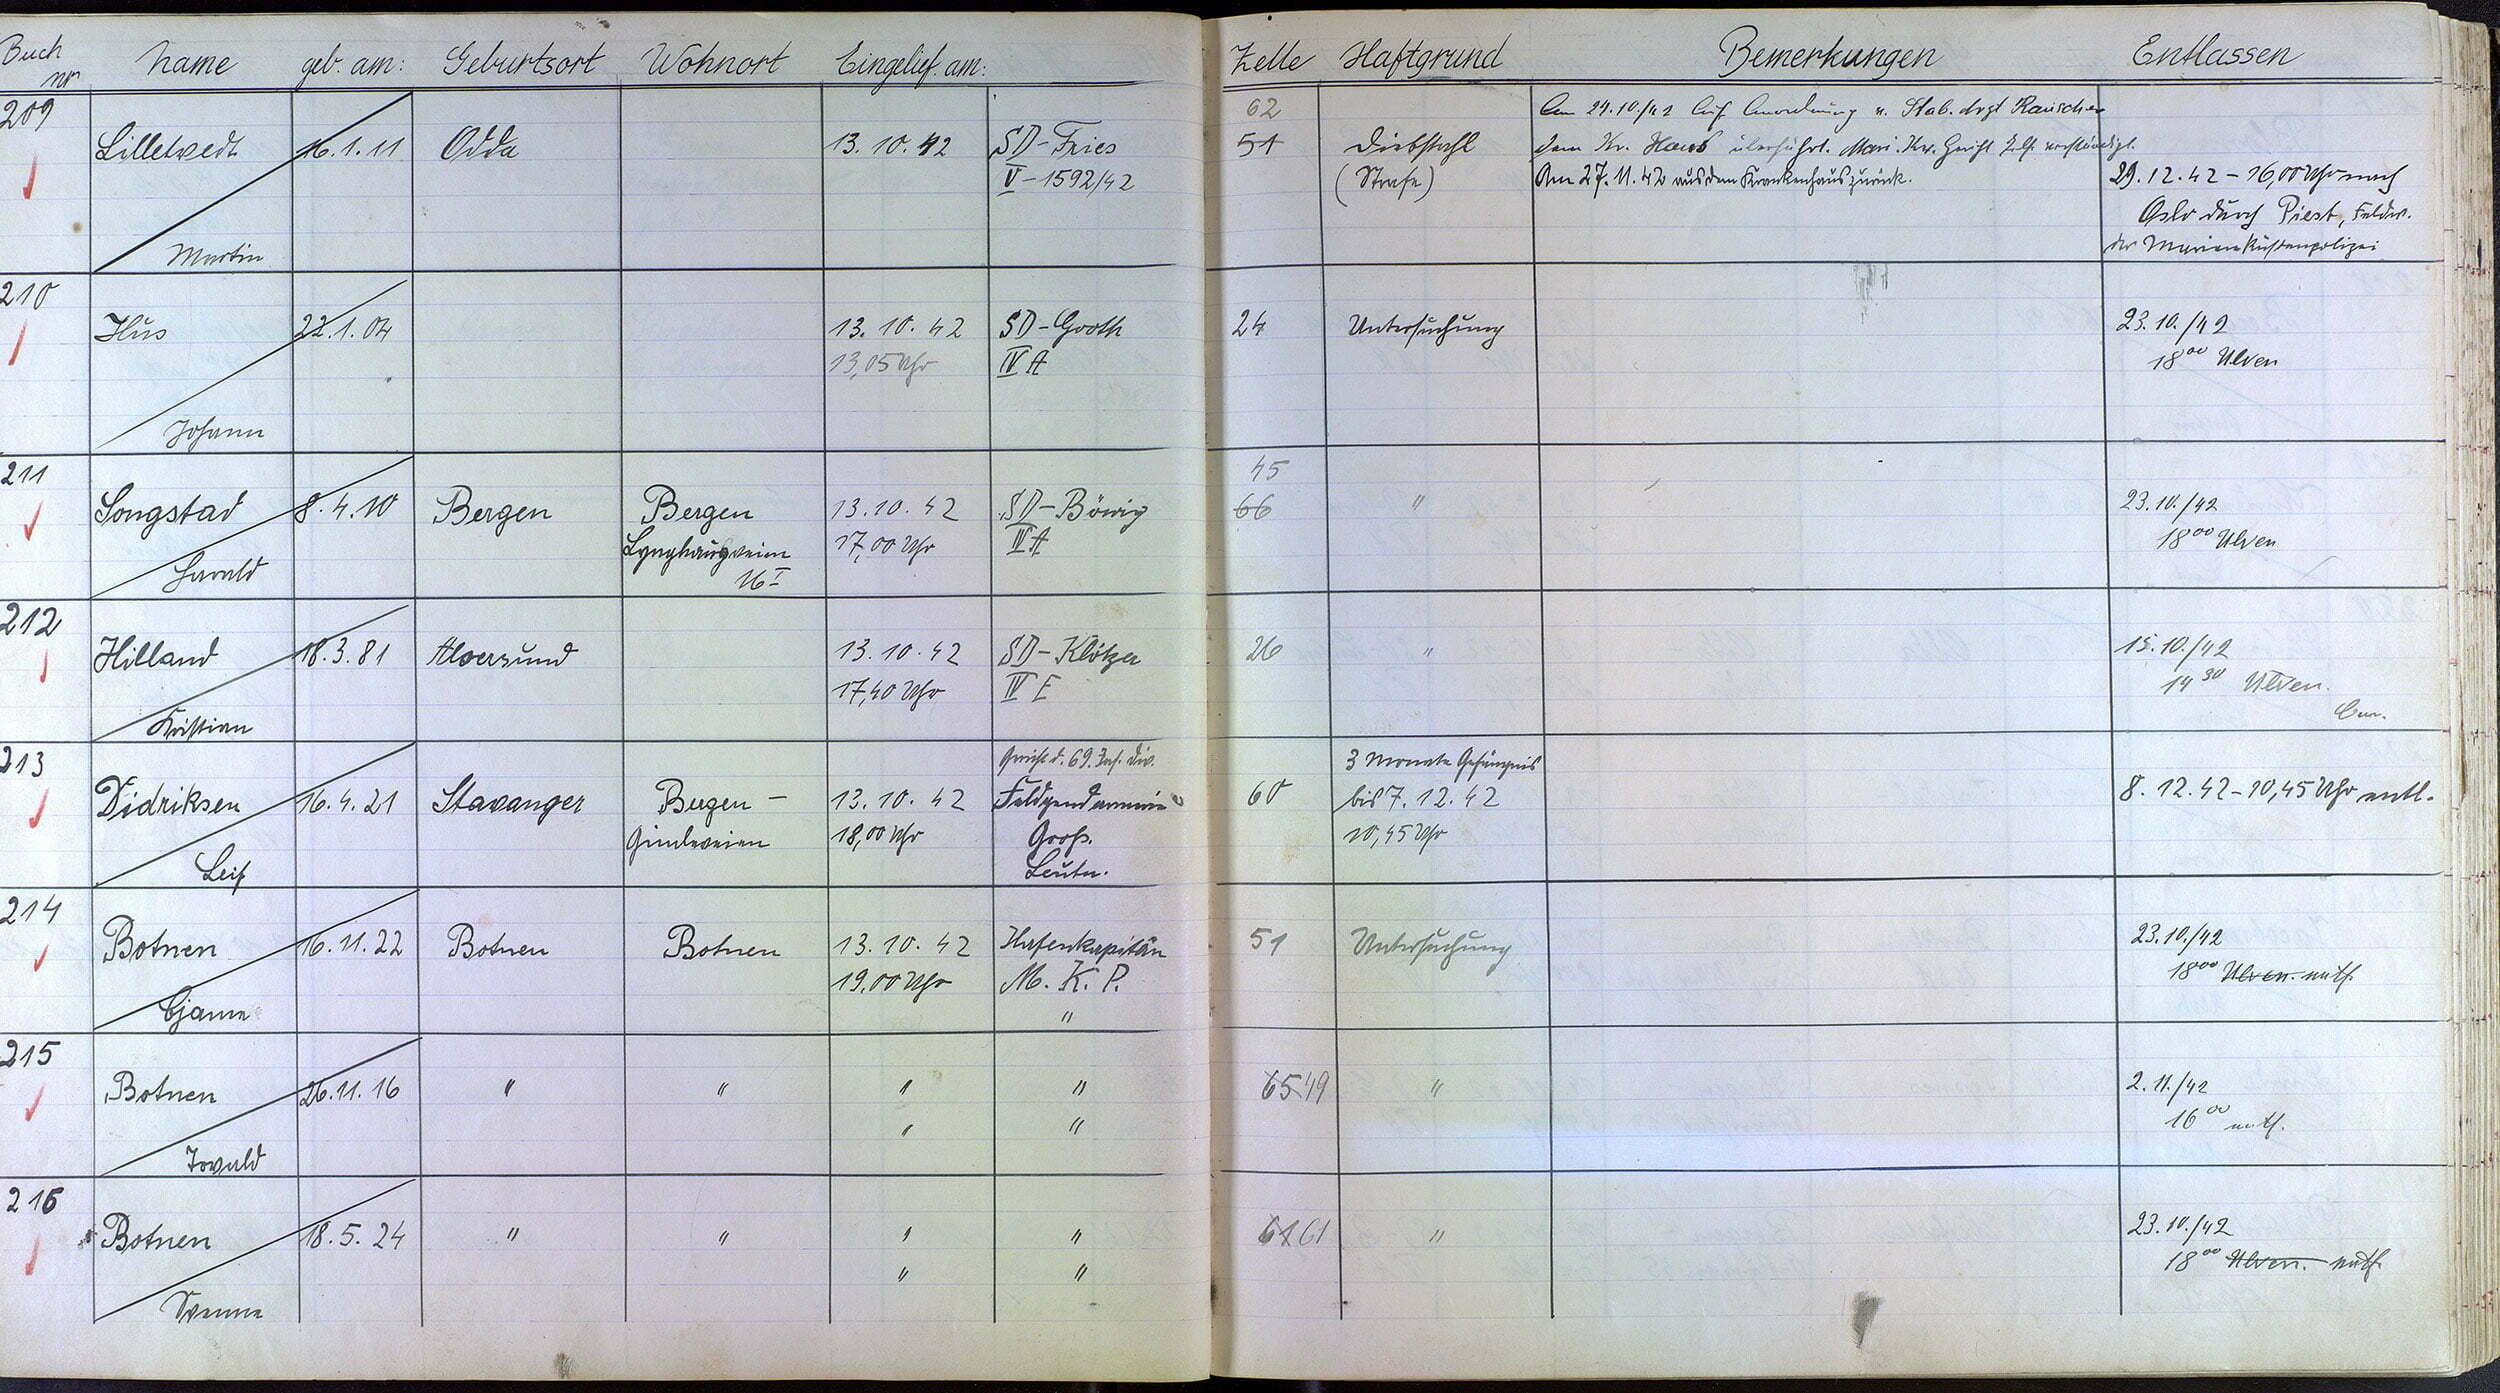 Buch nr Name geb. am: Geburtsort Wohnort Eingelief. am: Zelle Haftgrund Bemerkungen Entlassen
209
62 Am 24.10./42 Auf Anordnung v. Stab. Arzt Rauscher
Lilletvedt 16.1.11 Odda 13.10.42 SD-Fries 51 Diebstahl dem Kr. Haus überführt. Mari. verständigt.
V-1592/42 (Strafe) Am 27.11.42 aus dem Krankenhaus zurück. 29.12.42 - 16,00 Uhr nach
Oslo durch Piest, Feldw.
Martin der Marine Küstenpolizei
210
Hus 22.1.04 13.10.42 SD-Grooth 24 Untersuchung 23.10./42
13,05 Uhr IV A 18 00 Ulven
Johann
211 45
Songstad 8.4.10 Bergen Bergen 13.10.42 SD-Böwig 66 " 23.10./42
Lynghaugveien 17,00 Uhr IV A 18 00 Ulven
Harald 16 I
212
Hilland 18.3.81 Alversund 13.10.42 SD-Klötzer 26 " 15.10./42
17,40 Uhr IV E 14 30 Ulven.
Kristian
213 Gericht d. 69. Inf. Div. 3 Monate Gefängnis
Didriksen 16.4.21 Stavanger Bergen - 13.10.42 Feldgendarmerie 60 bis 7.12.42 8.12.42 - 10,45 Uhr entl.
Gimleveien 18,00 Uhr Groß. 10,45 Uhr
Leif Leutn.
214
Botnen 16.11.22 Botnen Botnen 13.10.42 Hafenkapitän 51 Untersuchung 23.10./42
19,00 Uhr M.K.P. 18 00 Ulven. entl.
Bjarne "
215
Botnen 26.11.16 " " " " 65 49 " 2.11./42
" " 16 00 entl.
Tovald
216
Botnen 18.5.24 " " " " 61 " 23.10./42
" " 18 00 Ulven. entl.
Sverre